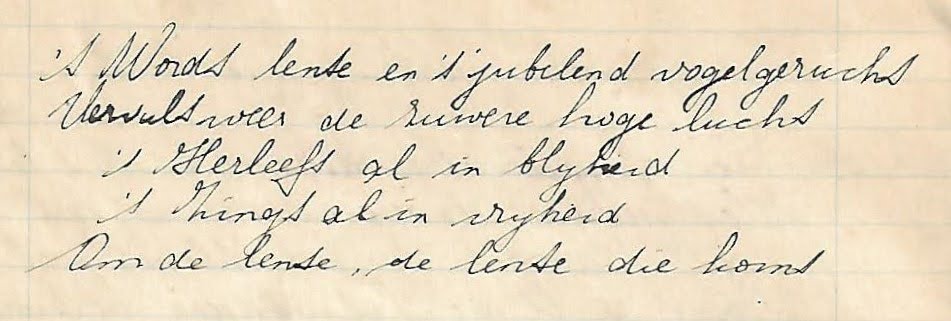 't Wordt lente en 't jubelend vogelgerucht
Vervult weer de zuivere hoge lucht
't Herleeft al in blijheid
't Zingt al in vrijheid
Om de lente, de lente die komt